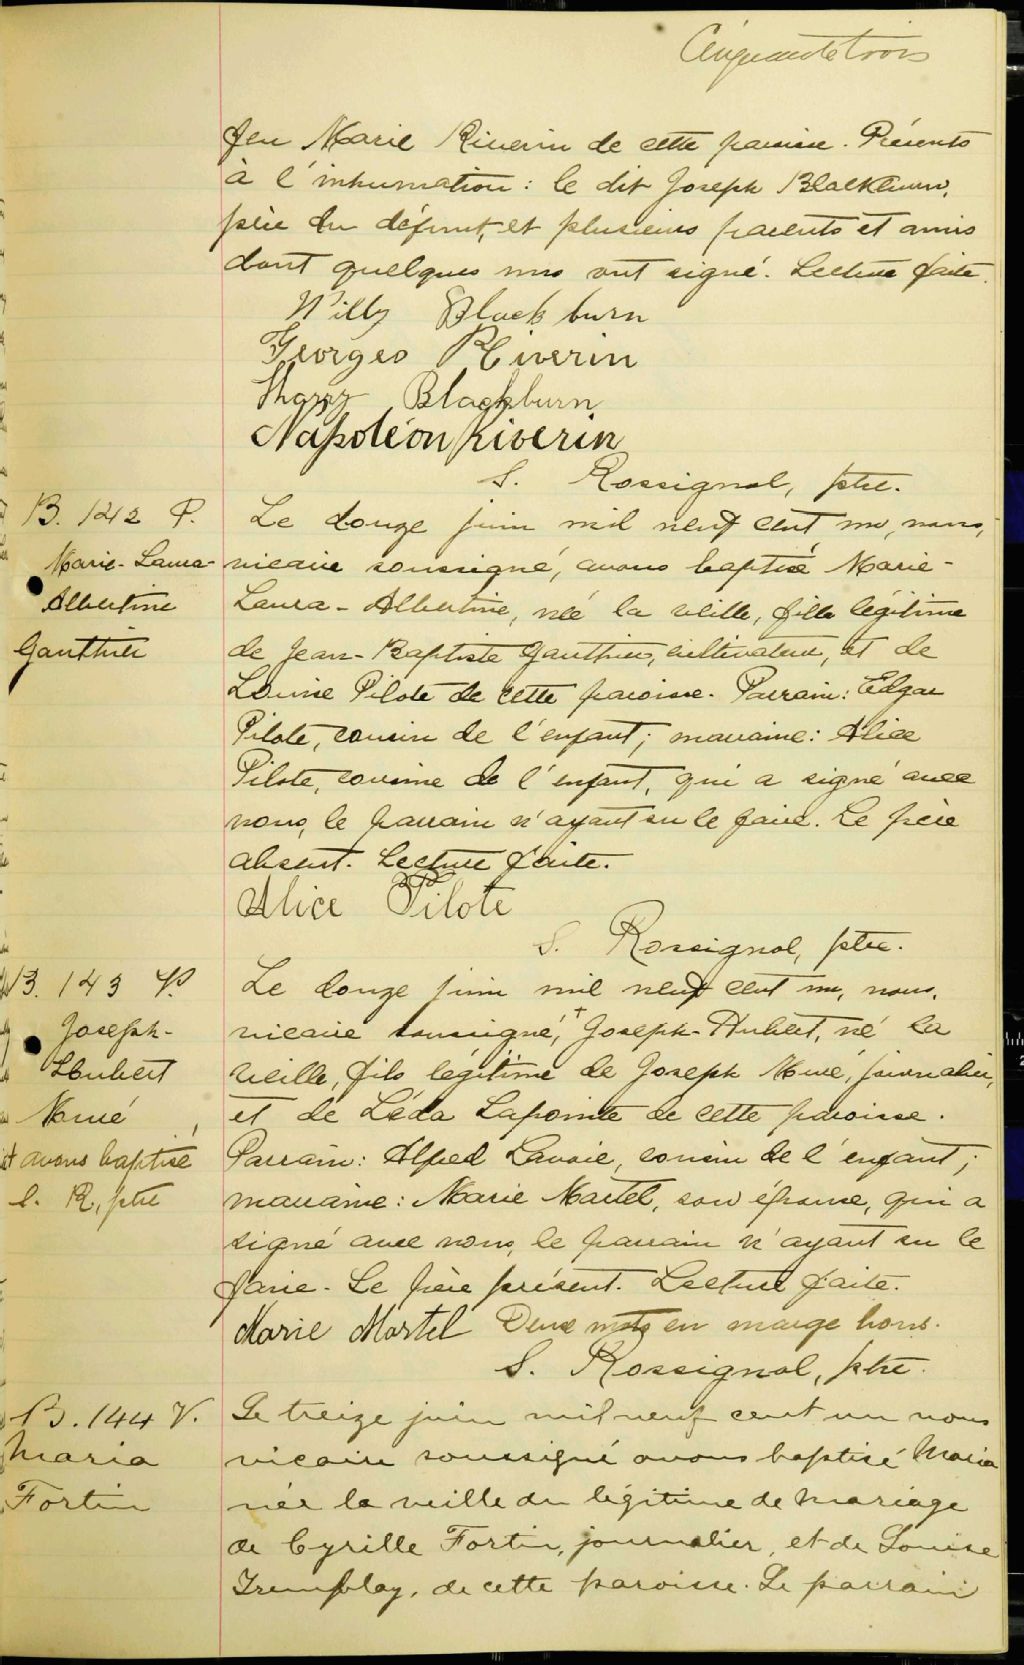 Cinquante trois
feu Marie Riverin de cette paroisse. Présents
à l'inhumation: le dit Joseph Blackburn,
père du défunt, et plusieurs parents et amis
dont quelques uns ont signé. Lecture faite.
Willy Blackburn
Georges Riverin
Blackburn
Napoléon Riverin
S. Rossignol, ptre.
B. 142 P.
Marie-Laura-
Albertine
Gauthier
Le douze juin mil neuf cent un, nous,
vicaire soussigné, avons baptisé Marie-
Laura-Albertine, née la veille, fille légitime
de Jean-Baptiste Gauthier, cultivateur, et de
Louise Pilote de cette paroisse. Parrain: Edgar
Pilote, cousin de l'enfant; marraine: Alice
Pilote, cousine de l'enfant, qui a signé avec
nous, le parrain n'ayant su le faire. Le père
absent. Lecture faite.
Alice Pilote
S. Rossignol, ptre.
B. 143
Joseph-
Hubert
Morné,
+ avons baptisé
S. R, ptre
Le douze juin mil neuf cent un, nous,
vicaire soussigné,+ Joseph-Hubert, né la
veille, fils légitime de Joseph, journalier,
et de Léda Lapointe de cette paroisse.
Parrain: Alfred Lavoie, cousin de l'enfant;
marraine: Marie Martel, son épouse, qui a
signé avec nous, le parrain n'ayant su le
faire. Le père présent. Lecture faite.
Marie Martel Deux mots en marge bons.
S. Rossignol, ptre.
B. 144 V.
Maria
Fortin
Le treize juin mil neuf cent un nous
vicaire soussigné avons baptisé Maria
née la veille du légitime de mariage
de Cyrille Fortin, journalier, et de Louise
Tremblay, de cette paroisse. Le parrain